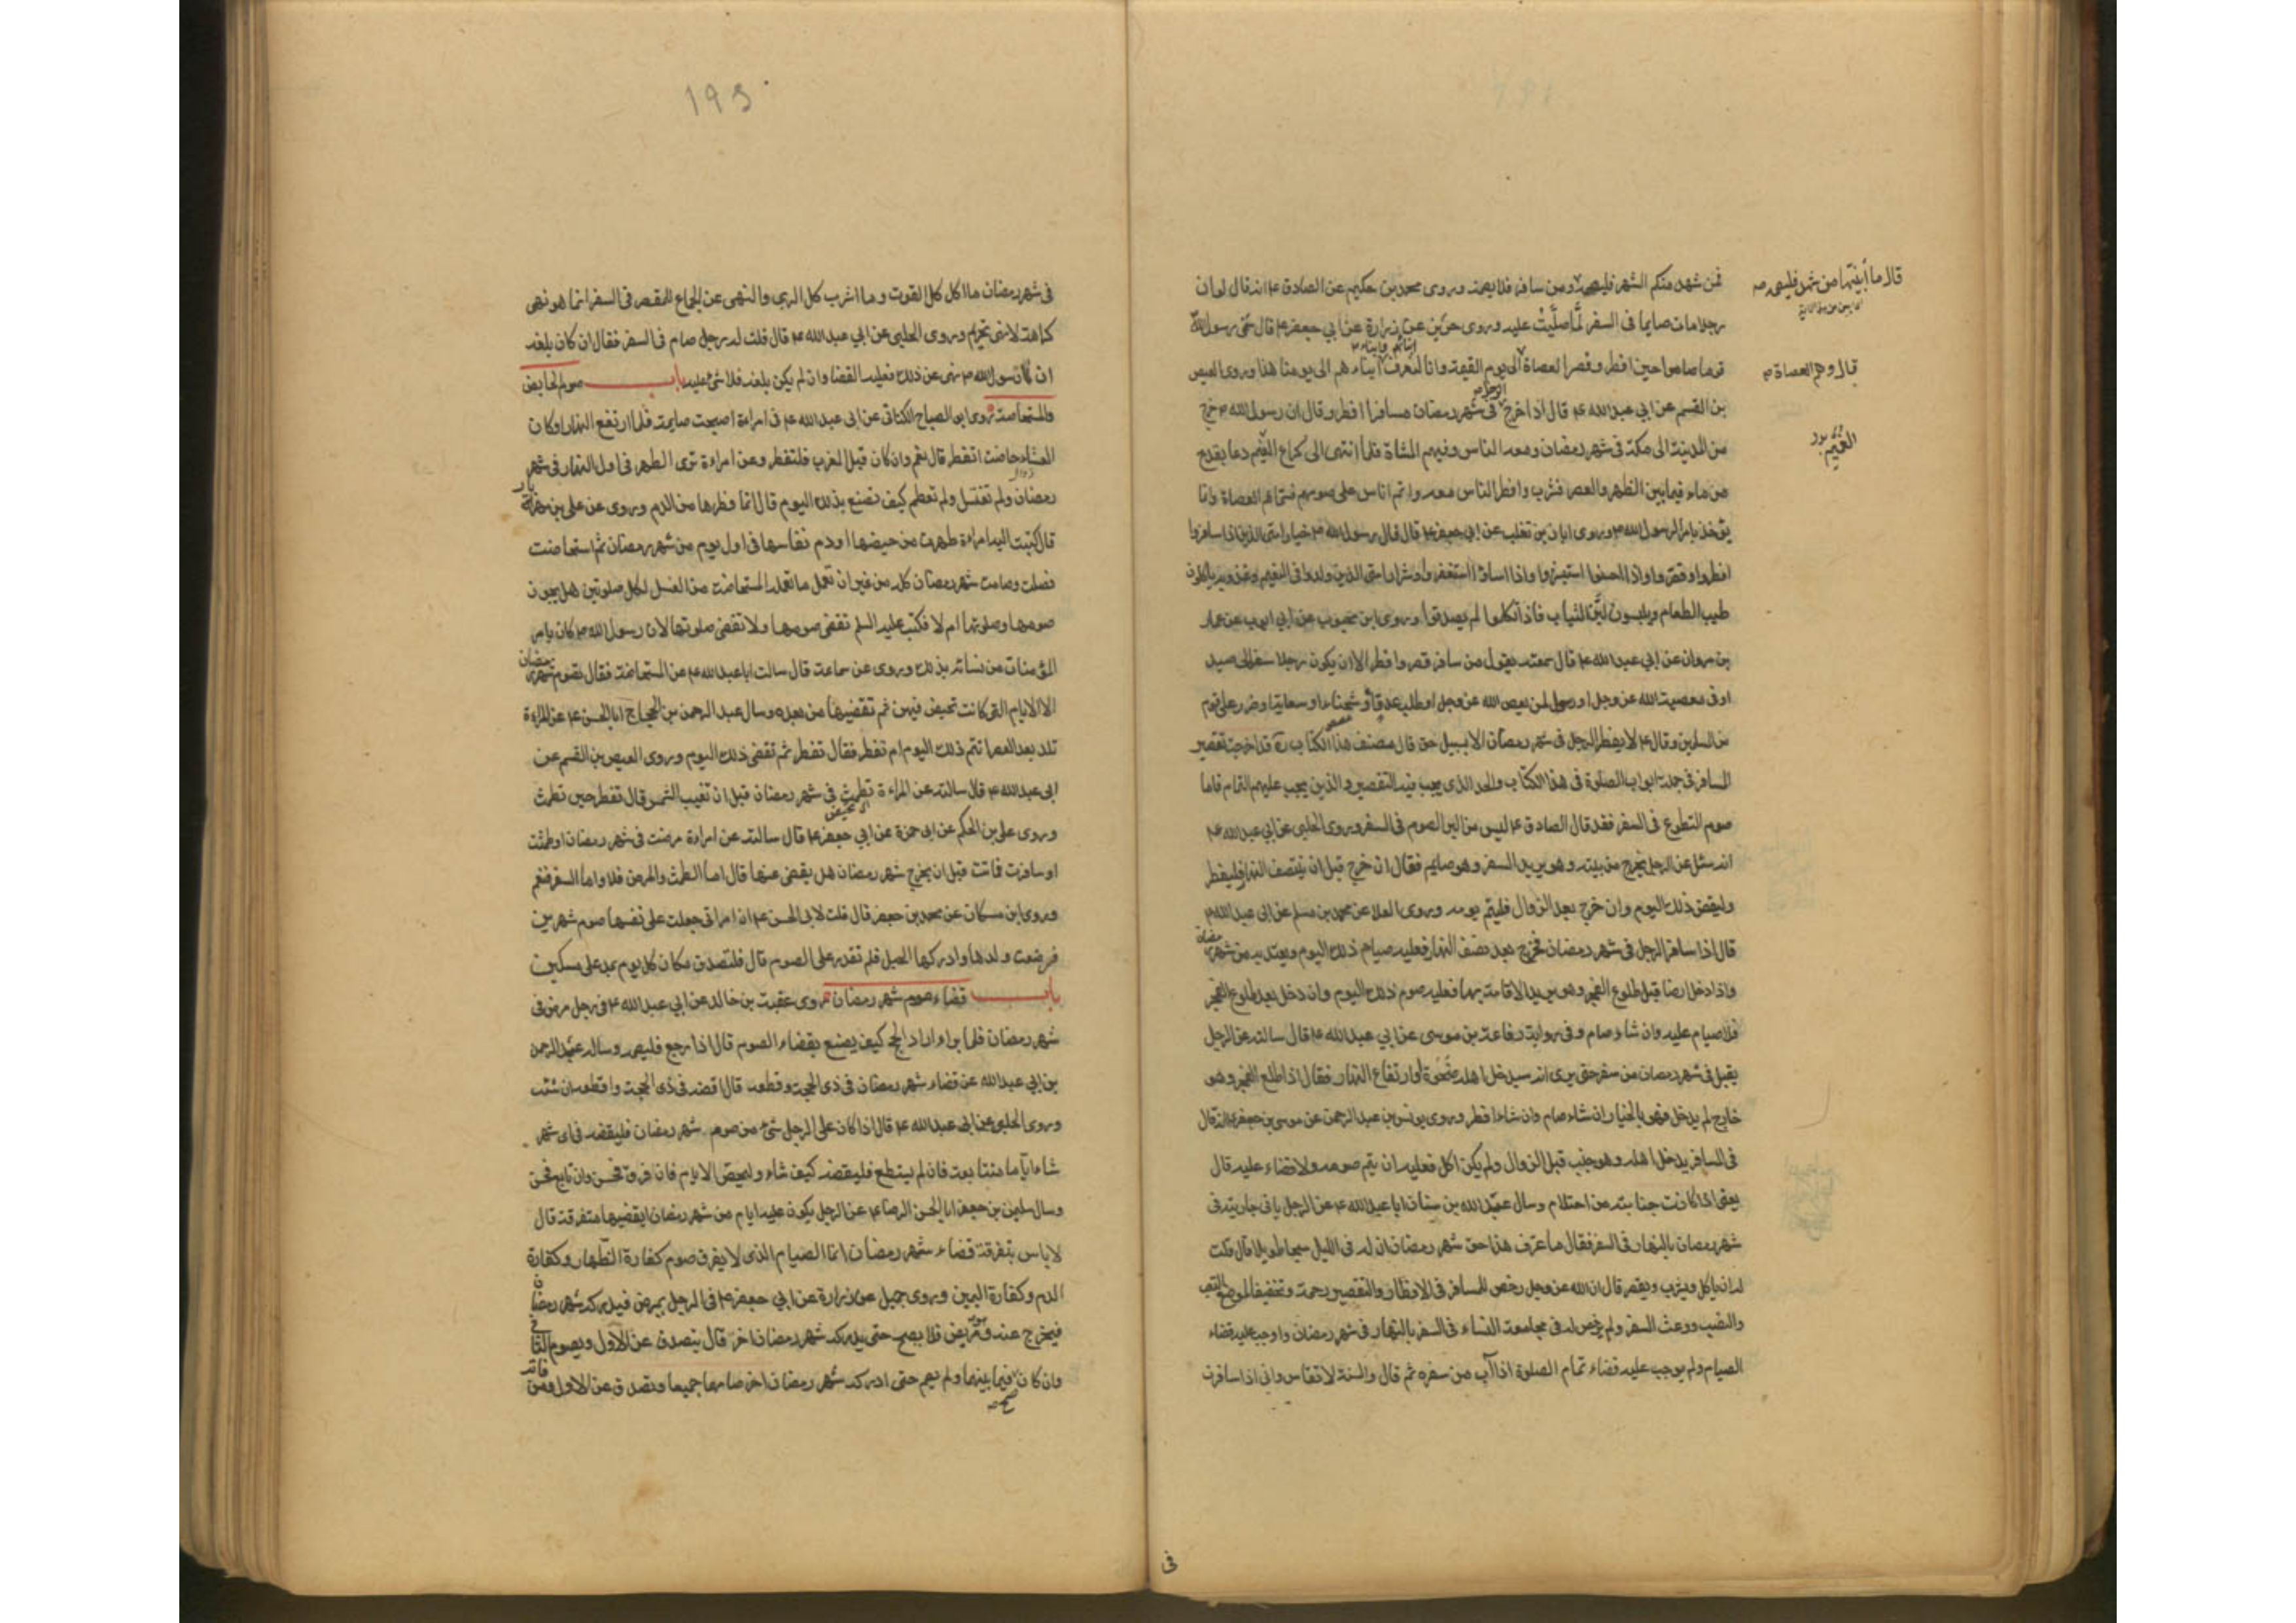 فمن شهد منكم الشهر فليصمه ومن سافر فلا يصمه وروى محمد بن حكيم عن الصادق ع انه قال لو ان
رجلا مات صايما فى السفر لما صليت عليه وروى حريز عن زرارة عن ابي جعفر ع قال سمى رسول الله
قوما صاموا حين افطر وقصر العصاة الى يوم القيمة وانا لنعرف ابناءهم الى يومنا هذا وروى العيص
بن القسم عن ابي عبد الله ع قال اذا خرج الرجل فى شهر رمضان مسافرا افطر وقال ان رسول الله ص خرج
من المدينة الى مكة فى شهر رمضان ومعه الناس وفيهم المشاة فلما انتهى الى كراع الغميم دعا بقدح
من ماء فيما بين الظهر والعصر فشرب وافطر الناس معه واتم اناس على صومهم فسماهم العصاة وانما
يؤخذ بامر رسول الله ص وروى ابان بن تغلب عن ابي جعفر ع قال قال رسول الله ص خيار امتى الذين اذا سافروا
افطروا وقصروا واذا احسنوا استبشروا واذا اساؤا استغفروا وشرار امتى الذين ولدوا فى النعيم وغذوا به ياكلون
طيب الطعام ويلبسون لين الثياب فاذا تكلموا لم يصدقوا وروى ابن محبوب عن ابي ايوب عن عمار
بن مروان عن ابي عبد الله ع قال سمعته يقول من سافر قصر وافطر الا ان يكون رجلا سفره الى صيد
او فى معصية الله عز وجل او رسول لمن يعص الله عز وجل او طلب عدو او شحناء او سعاية او ضرر على قوم
من المسلمين وقال ع لا يفطر الرجل فى شهر رمضان الا بسبيل حق قال مصنف هذا الكتاب ره قد اخرجت تقصير
المسافر فى جملة ابواب الصلوة فى هذا الكتاب والحد الذى يجب فيه التقصير والذين يجب عليهم التمام فاما
صوم التطوع فى السفر فقد قال الصادق ع ليس من البر الصوم فى السفر وروى الحلبى عن ابي عبد الله ع
انه سئل عن الرجل يخرج من بيته وهو يريد السفر وهو صايم فقال ان خرج قبل ان ينتصف النهار فليفطر
وليقض ذلك اليوم وان خرج بعد الزوال فليتم يومه وروى العلا عن محمد بن مسلم عن ابى عبد الله ع
قال اذا سافر الرجل فى شهر رمضان فخرج بعد نصف النهار فعليه صيام ذلك اليوم ويعتد به من شهر رمضان
واذا دخل ارضا قبل طلوع الفجر وهو يريد الاقامة بها فعليه صوم ذلك اليوم وان دخل بعد طلوع الفجر
فلا صيام عليه وان شاء صام وفى رواية رفاعة بن موسى عن ابي عبد الله ع قال سالته عن الرجل
يقبل فى شهر رمضان من سفر حتى يرى انه سيدخل اهله ضحوة او ارتفاع النهار فقال اذا طلع الفجر وهو
خارج لم يدخل فهو بالخيار ان شاء صام وان شاء افطر وروى يونس بن عبد الرحمن عن موسى بن جعفر ع انه قال
فى المسافر يدخل اهله وهو جنب قبل الزوال ولم يكن اكل فعليه ان يتم صومه ولا قضاء عليه قال
يعنى اذا كانت جنابته من احتلام وسال عبد الله بن سنان ابا عبد الله ع عن الرجل ياتى جاريته فى
شهر رمضان بالنهار فى السفر فقال ما عرف هذا حق شهر رمضان ان له فى الليل سبحا طويلا قال قلت
له ان ياكل ويشرب ويقصر قال ان الله عز وجل رخص للمسافر فى الافطار والتقصير رحمة وتخفيفا لموضع التعب
والنصب ووعث السفر ولم يرخص له فى مجامعة النساء فى السفر بالنهار فى شهر رمضان واوجب عليه قضاء
الصيام ولم يوجب عليه قضاء تمام الصلوة اذا آب من سفره ثم قال والسنة لا تقاس وانى اذا سافرت
فى
قال وهم العصاة
الغميم
193
فى شهر رمضان ما اكل كل القوت وما اشرب كل الرى والنهى عن الجماع للمقصر فى السفر انما هو نهى
كراهة لا نهى تحريم وروى الحلبى عن ابي عبد الله ع قال قلت له رجل صام فى السفر فقال ان كان بلغه
ان رسول الله ص نهى عن ذلك فعليه القضا وان لم يكن بلغه فلا شئ عليه باب صوم الحايض
والمستحاضة روى ابو الصباح الكنانى عن ابى عبد الله ع فى امراءة اصبحت صايمة فلما ارتفع النهار او كان
العشاء حاضت اتفطر قال نعم وان كان قبل المغرب فلتفطر وعن امراءة ترى الطهر فى اول النهار فى شهر
رمضان ولم تغتسل ولم تطعم كيف تصنع بذلك اليوم قال انما فطرها من الدم وروى عن على بن مهزيار
قال كتبت اليه امراءة طهرت من حيضها او دم نفاسها فى اول يوم من شهر رمضان ثم استحاضت
فصلت وصامت شهر رمضان كله من غير ان تعمل ما تعمله المستحاضة من الغسل لكل صلوتين هل يجوز
صومها وصلوتها ام لا فكتب عليه السلم تقضى صومها ولا تقضى صلوتها لان رسول الله ص كان يامر
المؤمنات من نسائه بذلك وروى عن سماعة قال سالت ابا عبد الله ع عن المستحاضة فقال تصوم شهر رمضان
الا الايام التى كانت تحيض فيهن ثم تقضيها من بعده وسال عبد الرحمن بن الحجاج ابا الحسن ع عن المراءة
تلد بعد العصر اتتم ذلك اليوم ام تفطر فقال تفطر ثم تقضى ذلك اليوم وروى العيص بن القسم عن
ابى عبد الله ع قال سالته عن المراءة تطمث فى شهر رمضان قبل ان تغيب الشمس قال تفطر حين تطمث
وروى على بن الحكم عن ابى حمزة عن ابي جعفر ع قال سالته عن امراءة مرضت فى شهر رمضان او طمثت
او سافرت فماتت قبل ان يخرج شهر رمضان هل يقضى عنها قال اما الطمث والمرض فلا واما السفر فنعم
وروى ابن مسكان عن محمد بن جعفر قال قلت لابى الحسن ع ان امراتى جعلت على نفسها صوم شهرين
فوضعت ولدها وادركها الحبل فلم تقدر على الصوم قال فلتصدق مكان كل يوم بمد على مسكين
باب قضاء صوم شهر رمضان روى عقبة بن خالد عن ابي عبد الله ع فى رجل مرض فى
شهر رمضان فلما برا اراد الحج كيف يصنع بقضاء الصوم قال اذا رجع فليصمه وساله عبد الرحمن
بن ابي عبد الله عن قضاء شهر رمضان فى ذى الحجة وقطعه قال اقضه فى ذى الحجة واقطعه ان شئت
وروى الحلبى عن ابى عبد الله ع قال اذا كان على الرجل شئ من صوم شهر رمضان فليقضه فى اى شهر
شاء اياما متتابعة فان لم يستطع فليقضه كيف شاء وليحص الايام فان فرق فحسن وان تابع فحسن
وسال سليمن بن جعفر ابا الحسن الرضا ع عن الرجل يكون عليه ايام من شهر رمضان ايقضيها متفرقة قال
لا باس بتفرقة قضاء شهر رمضان انما الصيام الذى لا يفرق صوم كفارة الظهار وكفارة
الدم وكفارة اليمين وروى جميل عن زرارة عن ابي جعفر ع فى الرجل يمرض فيدركه شهر رمضان
فيخرج عنه وهو مريض فلا يصح حتى يدركه شهر رمضان اخر قال يتصدق عن الاول ويصوم الثانى
وان كان صح فيما بينهما ولم يصم حتى ادركه شهر رمضان اخر صامهما جميعا وتصدق عن الاول ومن فاته